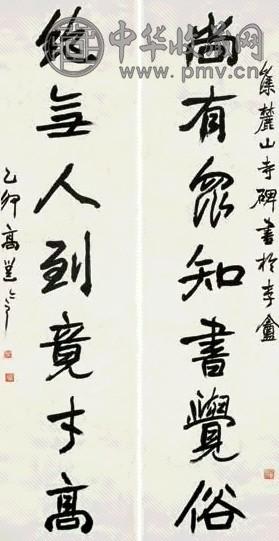 中华收藏网
www.pmv.cn
集麓山寺碑書於李盦
尚有眾知書覺俗
無人到竟才高
乙卯高邕